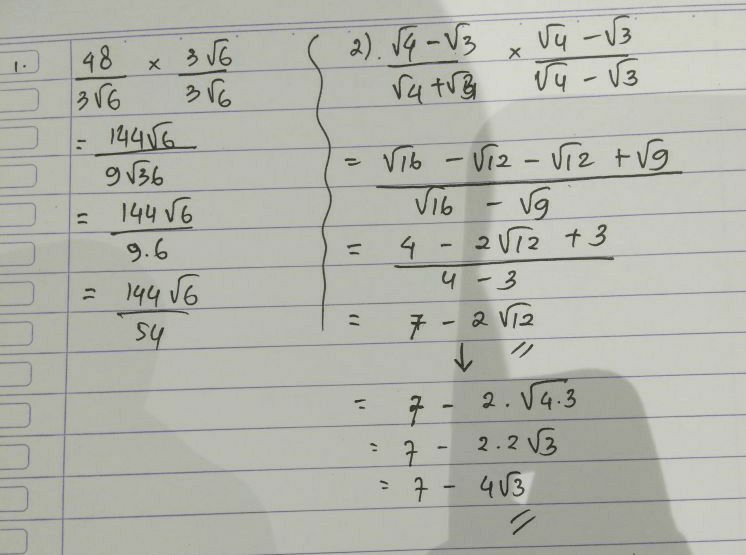 1. 48/3√6 × 3√6/3√6
= 144√6/9√36
= 144√6/9.6
= 144√6/54
2). √4 - √3/√4 + √3 × √4 - √3/√4 - √3
= √16 - √12 - √12 + √9/√16 - √9
= 4 - 2√12 + 3/4 - 3
= 7 - 2√12
↓ //
= 7 - 2.√4.3
= 7 - 2.2√3
= 7 - 4√3
//